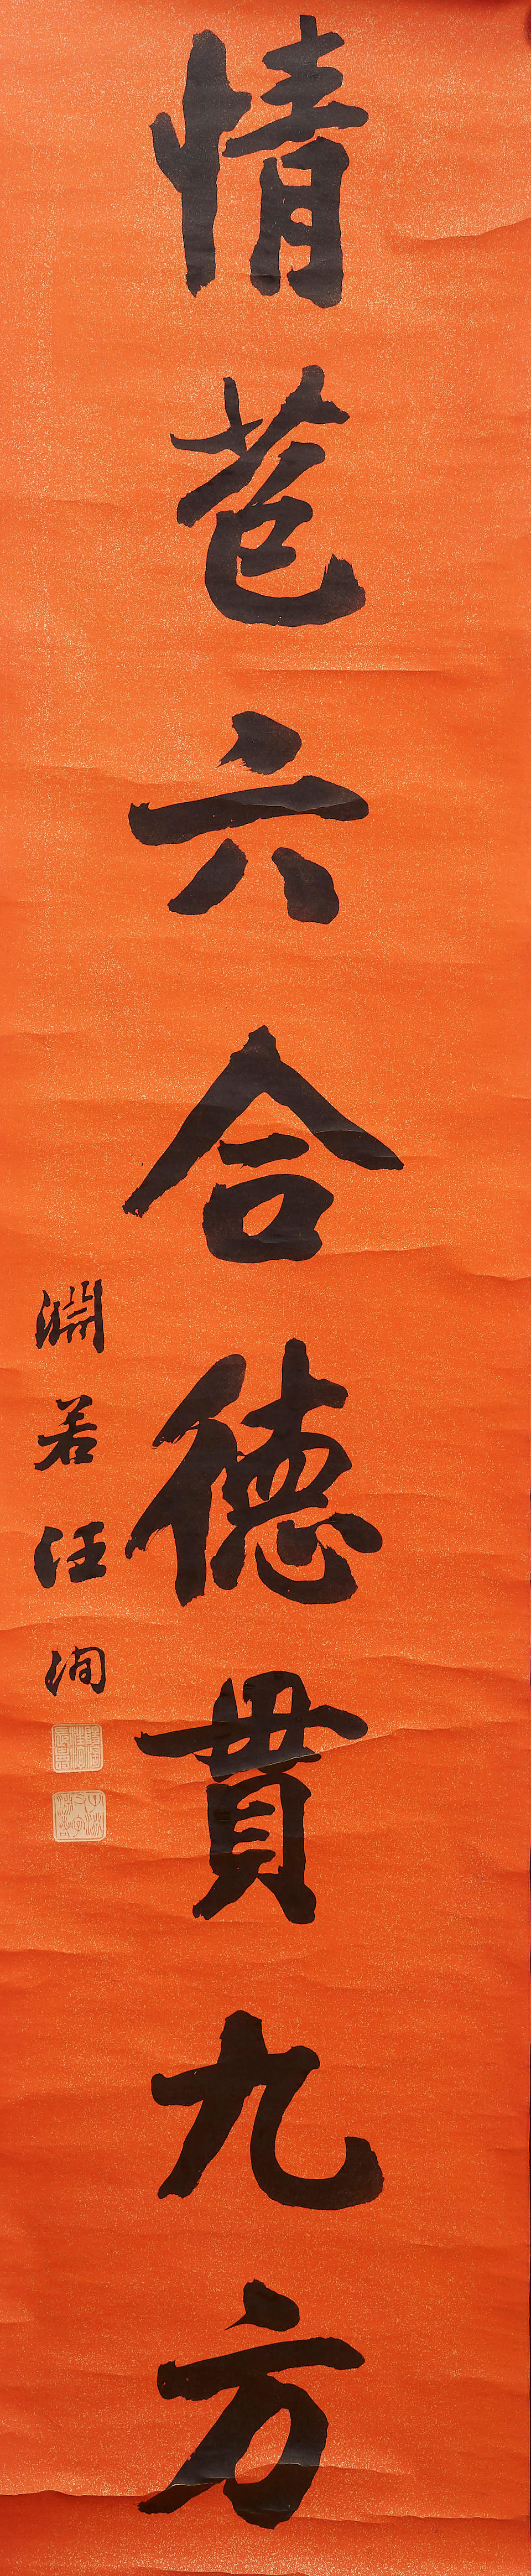 情苞六合德貫九方
淵若汪洵